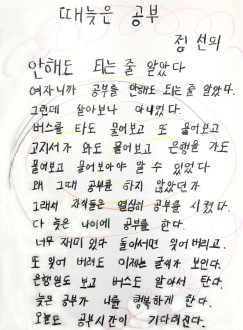 때늦은 공부
정 선의
안해도 되는 줄 알았다
여자니까 공부를 안해도 되는 줄 알았다.
그런데 살아보니 아니었다.
버스를 타도 물어보고 또 물어보고
고지서가 와도 물어보고 은행을 가도
물어보고 물어보아야 알 수 있었다.
왜 그때 공부를 하지 않았던가
그래서 자식들은 열심히 공부를 시켰다.
다 늦은 나이에 공부를 한다.
너무 재미 있다 돌아서면 잊어 버리고.
또 잊어 버려도 이제는 글씨가 보인다.
은행일도 보고 버스도 알아서 탄다.
늦은 공부가 나를 행복하게 한다.
오늘도 공부시간이 기다려진다.